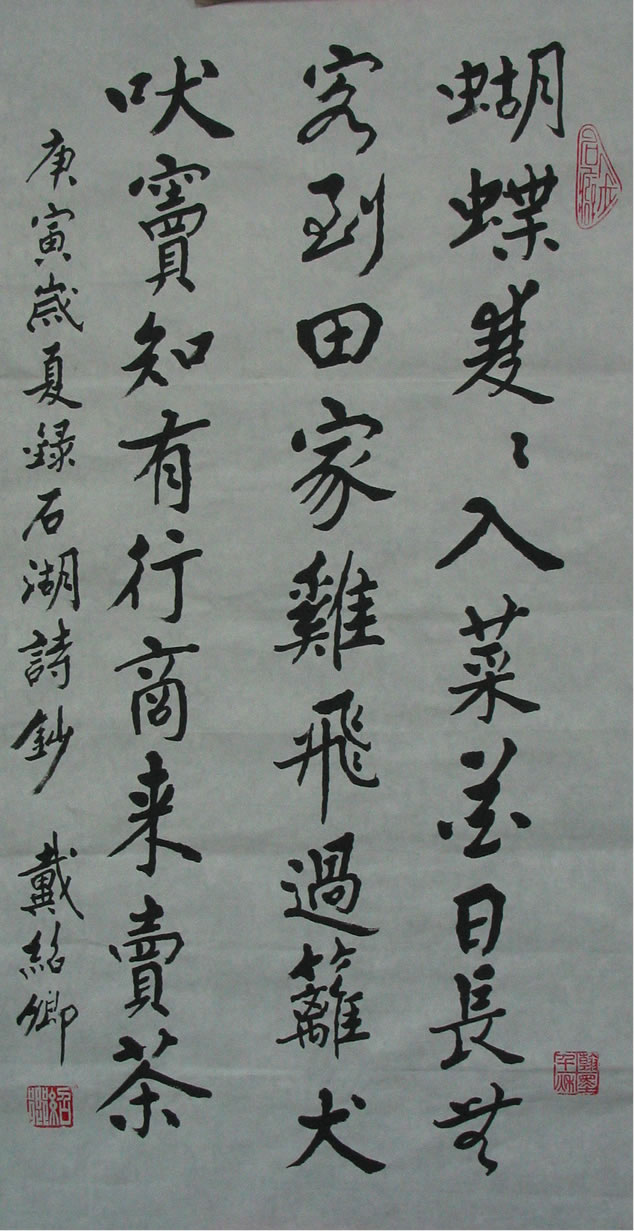 蝴蝶雙〻入菜花日長無
客到田家雞飛過籬犬
吠竇知有行商来賣茶
庚寅歲夏録石湖詩鈔 戴紹卿